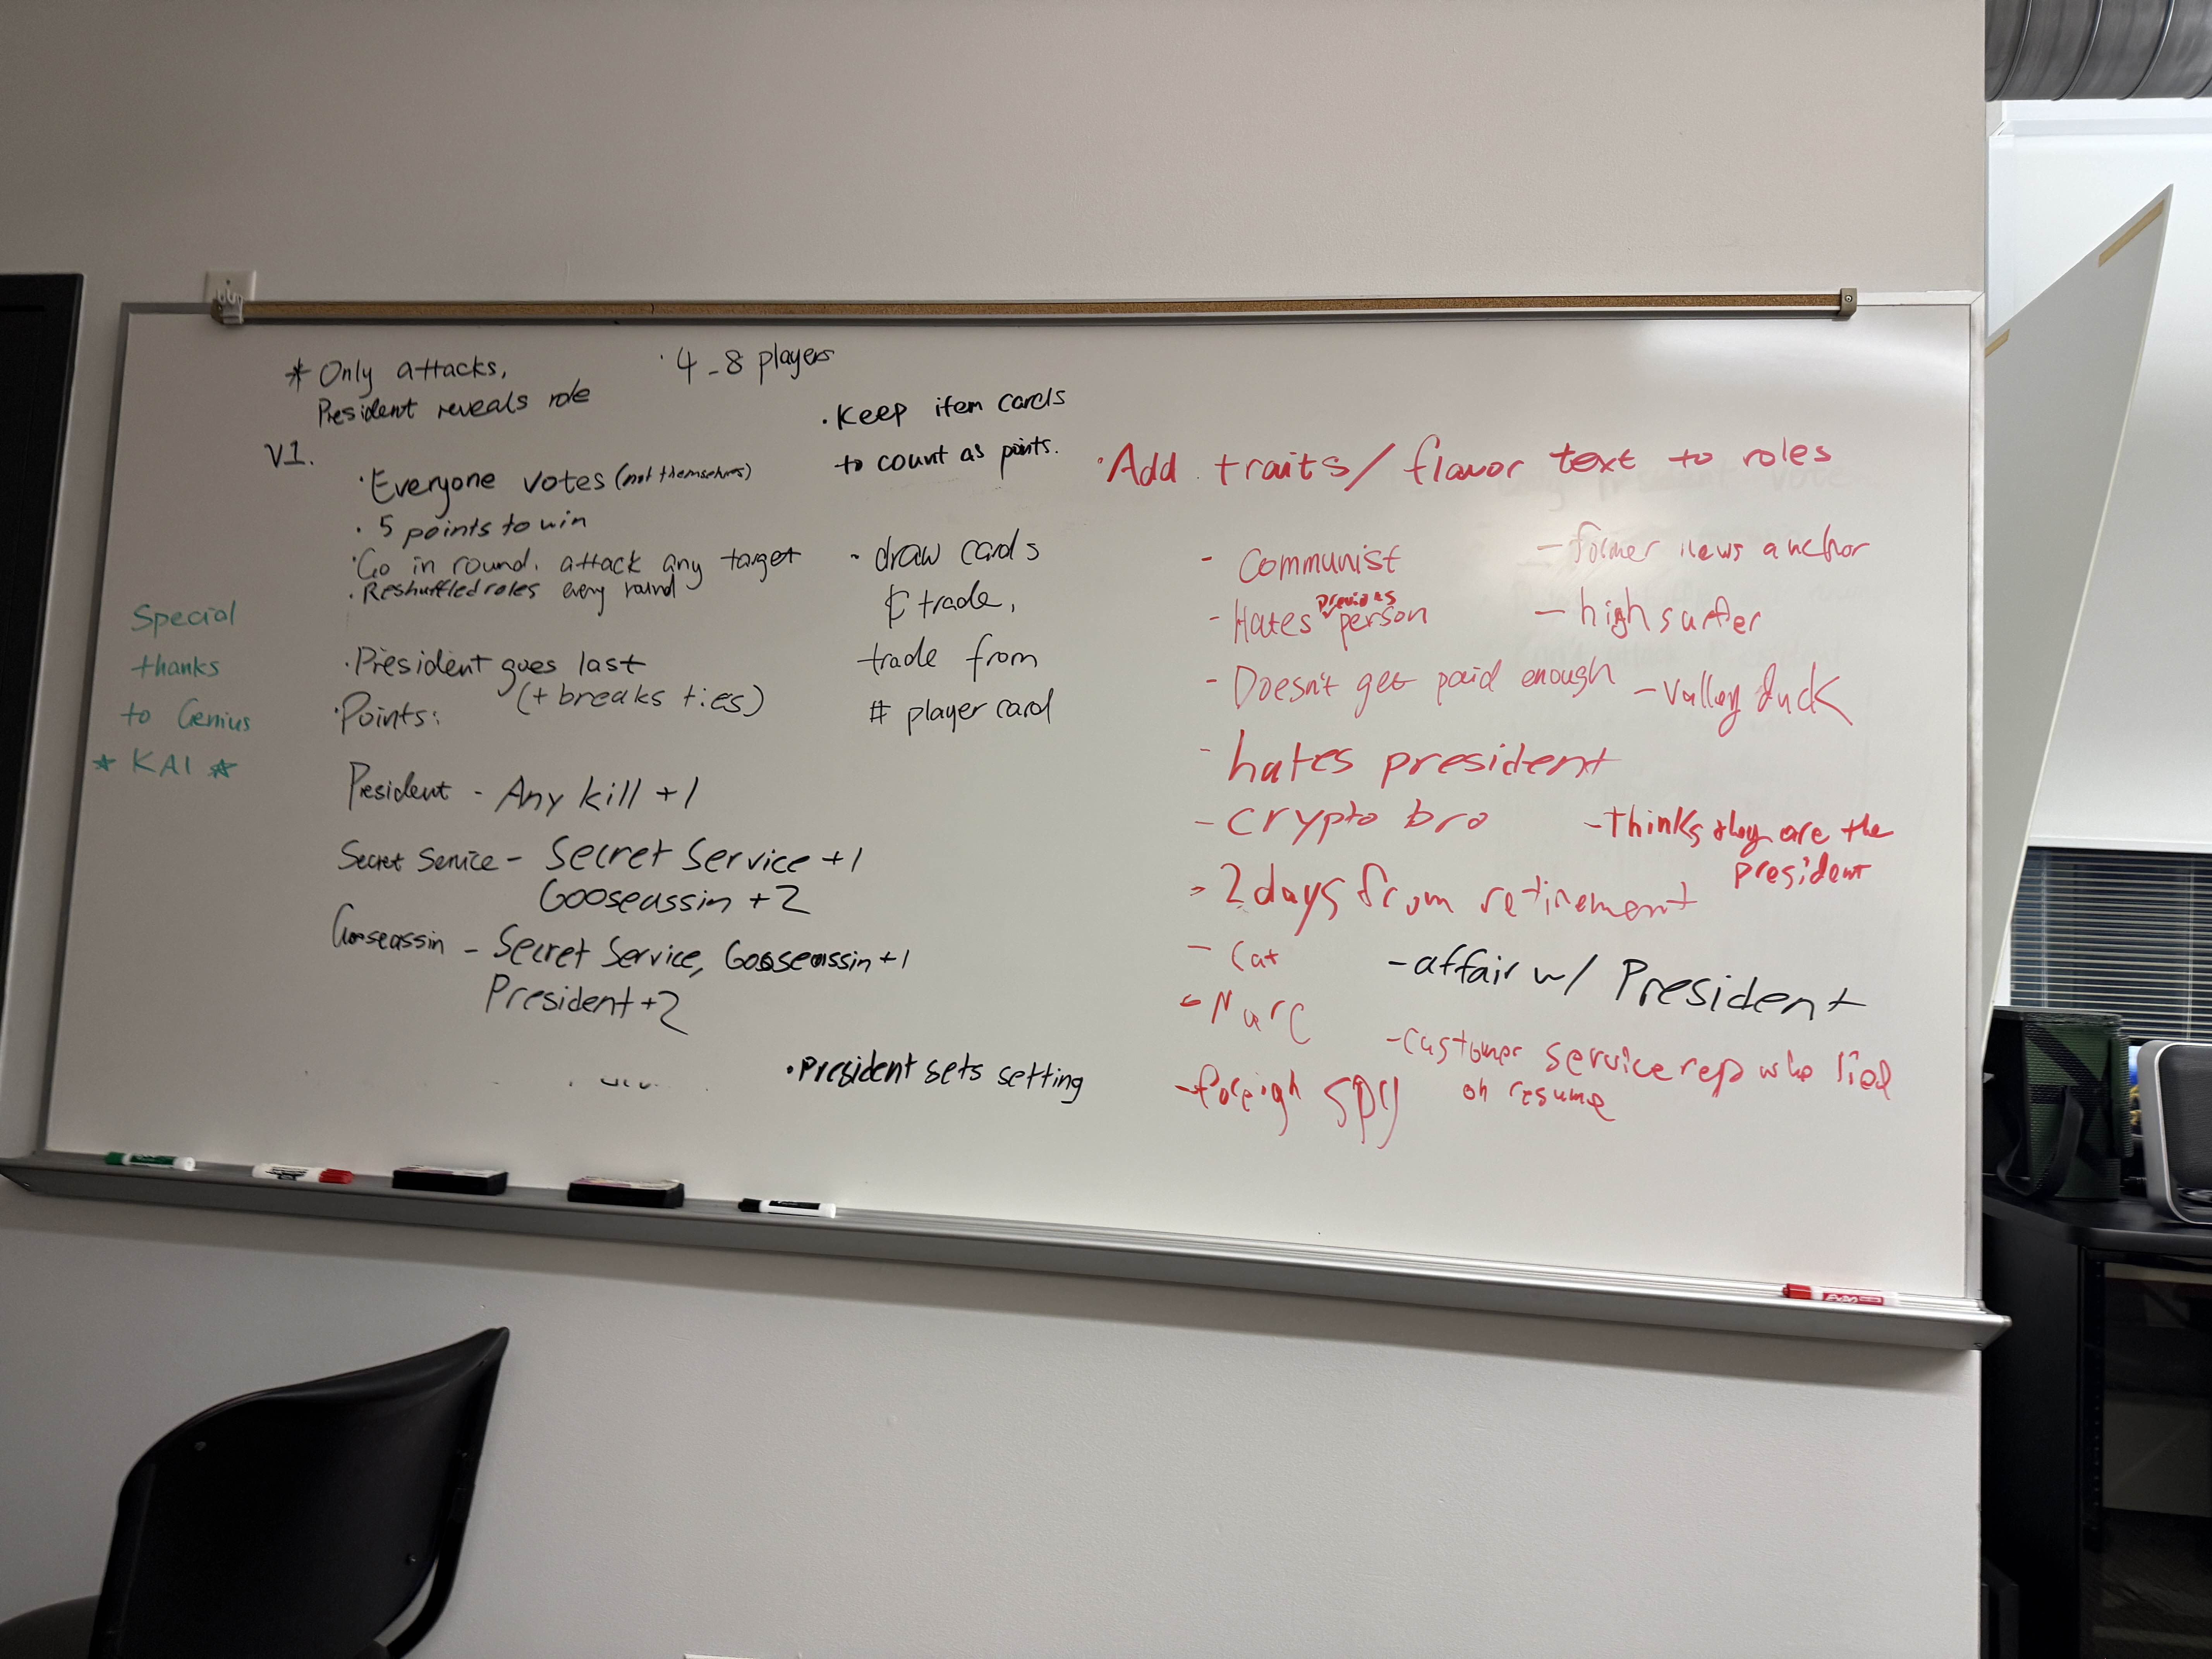 * Only attacks,
President reveals role
· 4-8 players
V1.
· Everyone votes (not themselves)
· 5 points to win
· Go in round. attack any target
· Reshuffled roles every round
· President goes last
(+ breaks ties)
· Points:
President - Any kill +1
Secret Service - Secret Service +1
Gooseassin +2
Gooseassin - Secret Service, Gooseassin +1
President +2
· Keep item cards
to count as points.
· draw cards
& trade,
trade from
# player card
· President sets setting
Special
thanks
to Genius
* KAI *
· Add traits/flavor text to roles
- Communist
- Hates previous person
- Doesn't get paid enough
- hates president
- crypto bro
- 2 days from retirement
- Cat
- Narc
- foreign spy
- former news anchor
- high surfer
- valley duck
- Thinks they are the
president
- affair w/ President
- customer service rep who lied
on resume
EXPO